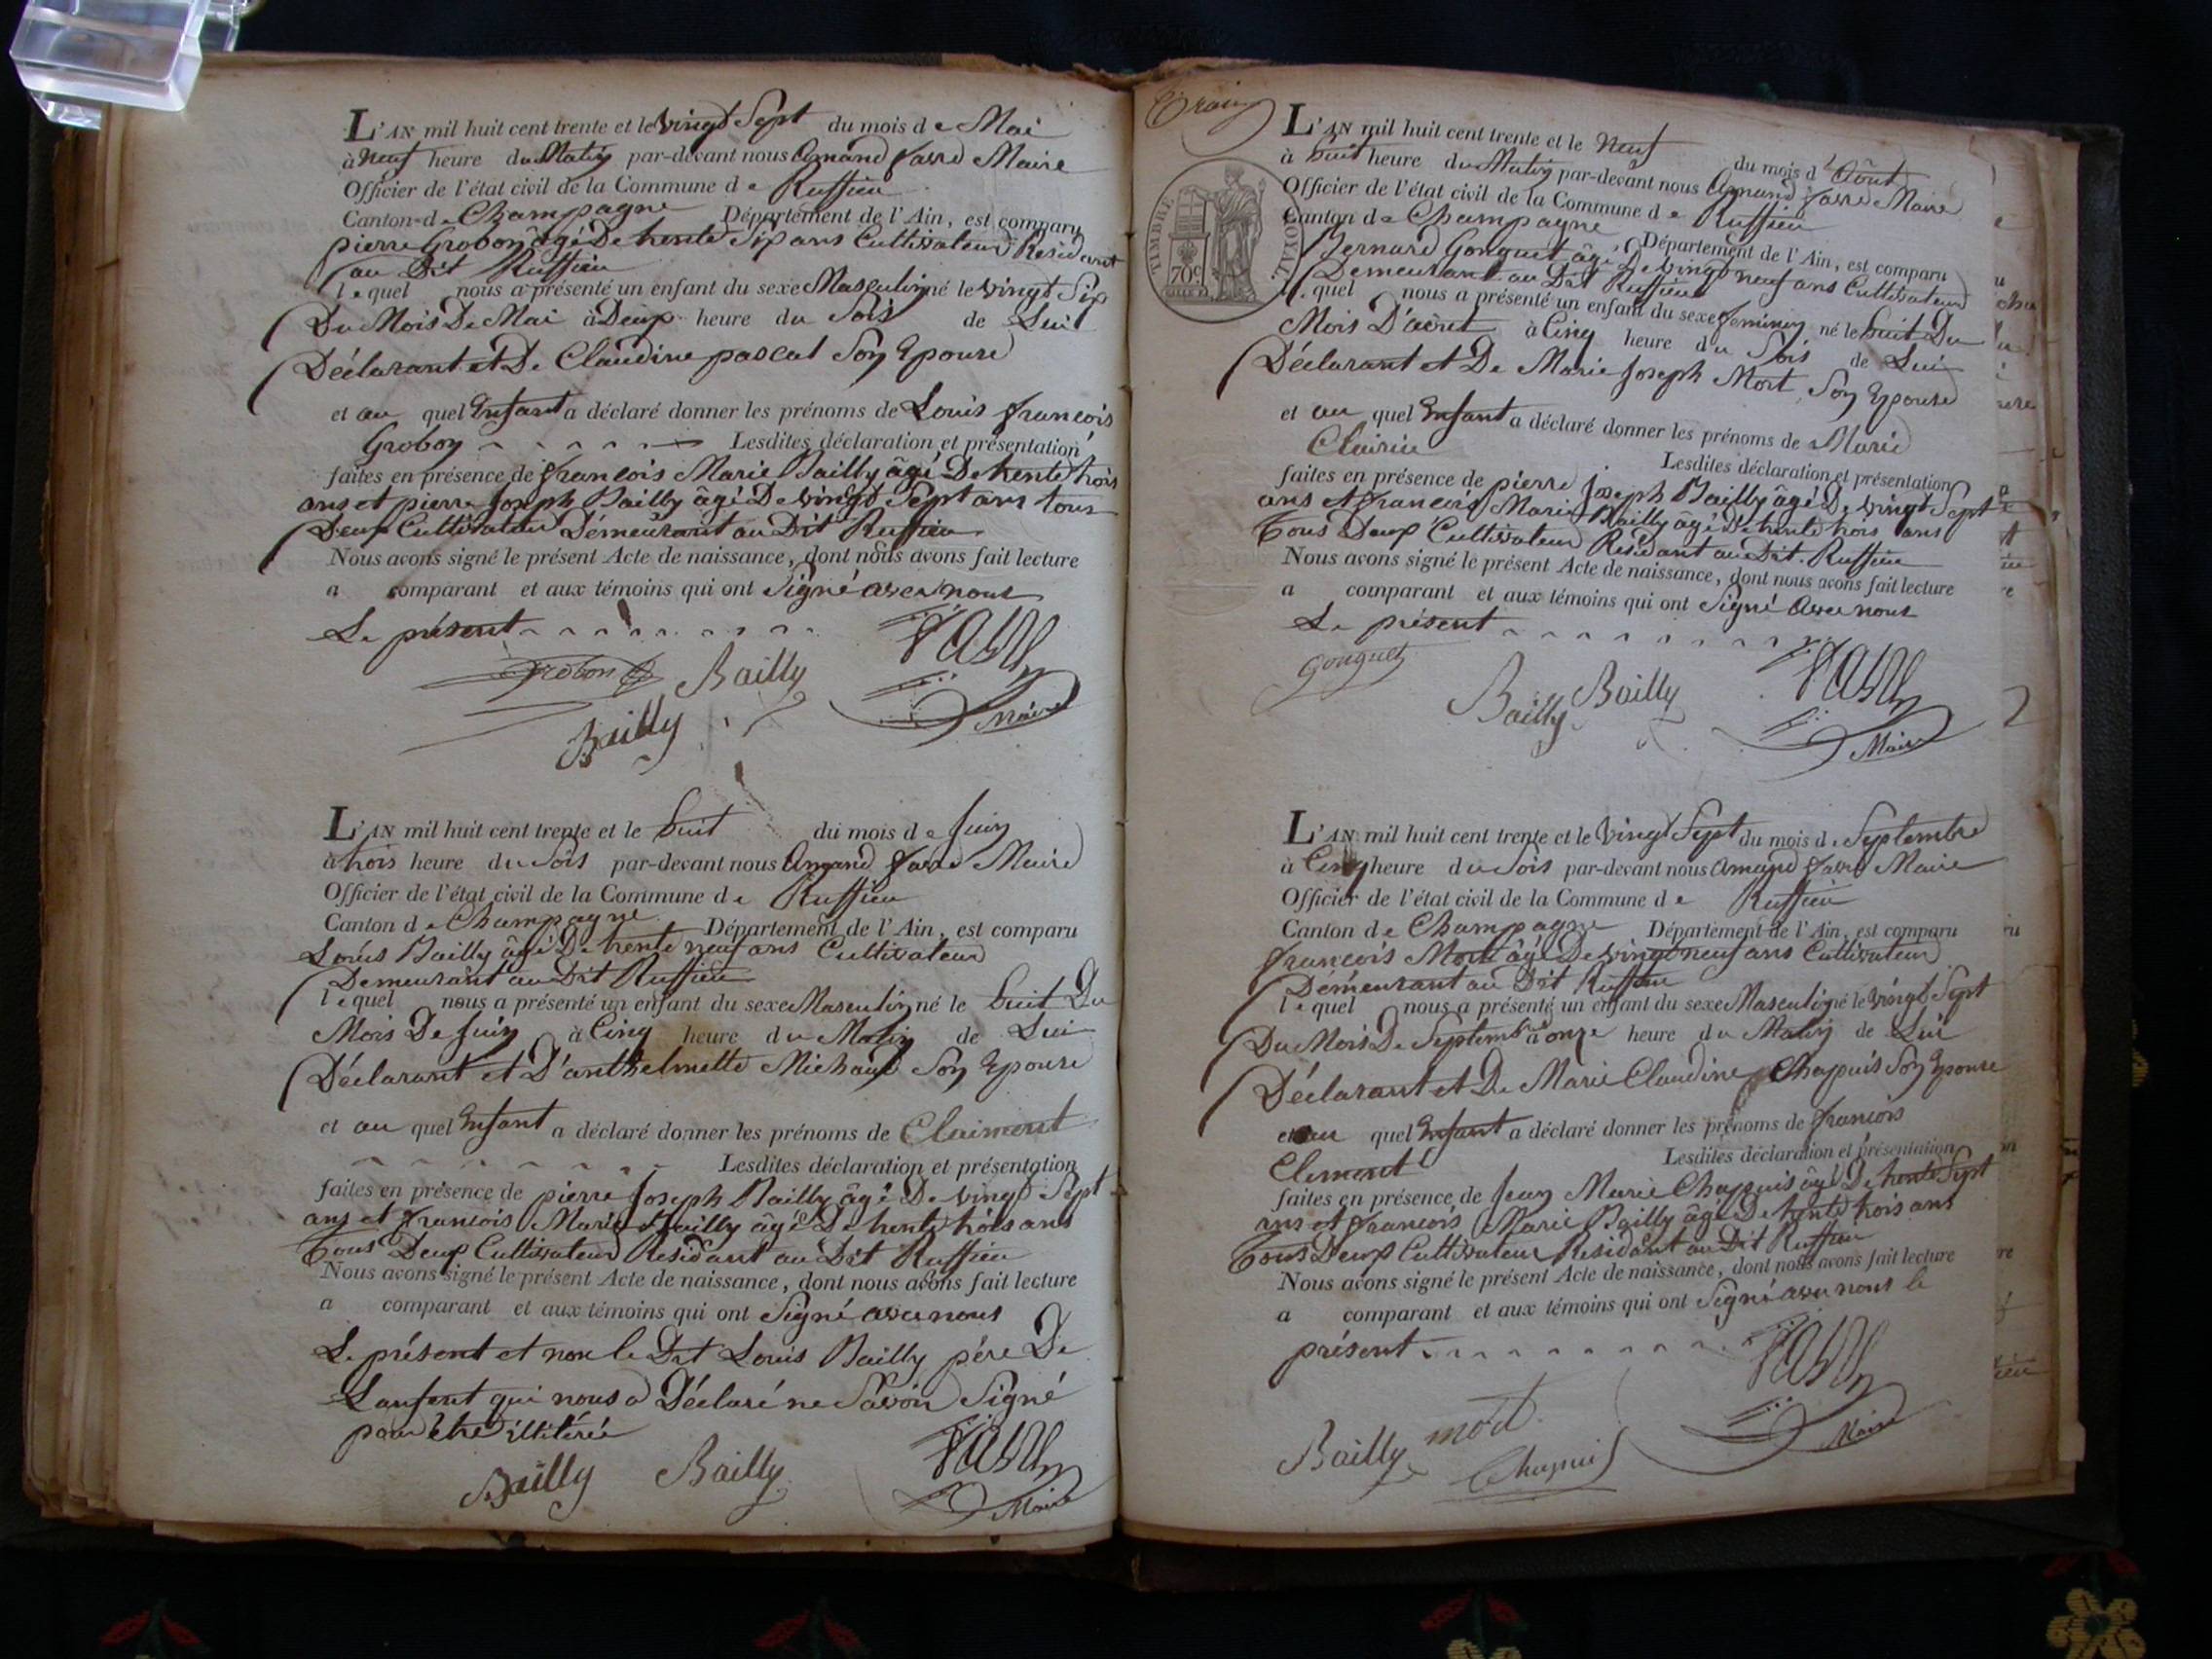 L'AN mil huit cent trente et le vingt Sept du mois de Mai
à neuf heure du Matin par-devant nous Amand favre Maire
Officier de l'état civil de la Commune de Ruffieu
Canton de Champagne Département de l'Ain, est comparu
pierre Grobon âgé De trente Six ans Cultivateur Résidant
au Dit Ruffieu
lequel nous a présenté un enfant du sexe Masculin né le vingt Six
Du Mois De Mai à Deux heure du Soir de Lui
Déclarant et De Claudine pascal Son Epouse
et au quel Enfant a déclaré donner les prénoms de Louis françois
Grobon Lesdites déclaration et présentation
faites en présence de françois Marie Bailly âgé De trente trois
ans et pierre Joseph Bailly âgé De vingt Sept ans tous
Deux Cultivateur Démeurant au Dit Ruffieu
Nous avons signé le présent Acte de naissance, dont nous avons fait lecture
a comparant et aux témoins qui ont Signé avec nous
Le présent
Grobon Bailly favre
Bailly Maire
L'AN mil huit cent trente et le huit du mois de Juin
à trois heure du Soir par-devant nous Amand favre Maire
Officier de l'état civil de la Commune de Ruffieu
Canton de Champagne Département de l'Ain, est comparu
Louis Bailly âgé De trente neuf ans Cultivateur
Demeurant au Dit Ruffieu
lequel nous a présenté un enfant du sexe Masculin né le huit Du
Mois De Juin à Cinq heure du Matin de Lui
Déclarant et D'anthelmette Michaud Son Epouse
et au quel Enfant a déclaré donner les prénoms de Claiment
Lesdites déclaration et présentation
faites en présence de pierre Joseph Bailly âgé De vingt Sept
ans et françois Marie Bailly âgé De trente trois ans
Tous Deux Cultivateur Résidant au Dit Ruffieu
Nous avons signé le présent Acte de naissance, dont nous avons fait lecture
a comparant et aux témoins qui ont Signé avec nous
Le présent et non le Dit Louis Bailly père De
Lanfent qui nous a Déclaré ne Savoir Signé
pour être illitérée
Bailly Bailly favre
Maire
TIMBRE ROYAL
70c
L'AN mil huit cent trente et le neuf du mois d'Aôut
à huit heure du Matin par-devant nous Amand favre Maire
Officier de l'état civil de la Commune de Ruffieu
Canton de Champagne Département de l'Ain, est comparu
Bernard Gonguet âgé De vingt neuf ans Cultivateur
Demeurant au Dit Ruffieu
lequel nous a présenté un enfant du sexe feminin né le huit Du
Mois D'aôut à Cinq heure du Soir de Lui
Déclarant et De Marie Joseph Mort Son Epouse
et au quel Enfant a déclaré donner les prénoms de Marie
Clairie
Lesdites déclaration et présentation
faites en présence de pierre Joseph Bailly âgé De vingt Sept
ans et françois Marie Bailly âgé De trente trois ans
Tous Deux Cultivateur Résidant au Dit Ruffieu
Nous avons signé le présent Acte de naissance, dont nous avons fait lecture
a comparant et aux témoins qui ont Signé avec nous
Le présent
Gonguet Bailly Bailly favre
Maire
L'AN mil huit cent trente et le vingt Sept du mois de Septembre
à Cinq heure du Soir par-devant nous Amand favre Maire
Officier de l'état civil de la Commune de Ruffieu
Canton de Champagne Département de l'Ain, est comparu
françois Mort âgé De vingt neuf ans Cultivateur
Démeurant au Dit Ruffieu
lequel nous a présenté un enfant du sexe Masculin né le vingt Sept
Du Mois De Septembre à onze heure du Matin de Lui
Déclarant et De Marie Claudine Chapuis Son Epouse
et au quel Enfant a déclaré donner les prénoms de francois
Clement Lesdites déclaration et présentation
faites en présence de Jean Marie Chapuis âgé De trente Sept
ans et francois Marie Bailly âgé De trente trois ans
Tous Deux Cultivateur Résidant au Dit Ruffieu
Nous avons signé le présent Acte de naissance, dont nous avons fait lecture
a comparant et aux témoins qui ont Signé avec nous le
présent
favre
Bailly mort Chapuis Maire